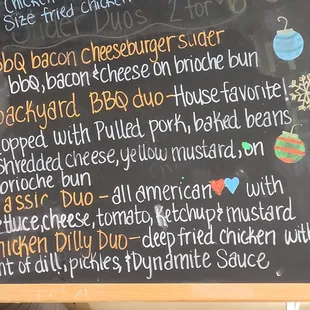 Chicken
Size fried chicken
Slider Duos 2 for
BBQ bacon cheeseburger slider
bbq, bacon & cheese on brioche bun
backyard BBQ duo - House favorite!
topped with Pulled pork, baked beans
shredded cheese, yellow mustard, on
brioche bun
Classic Duo - all american with
lettuce, cheese, tomato, ketchup & mustard
Chicken Dilly Duo - deep fried chicken with
hint of dill, pickles, & Dynamite Sauce